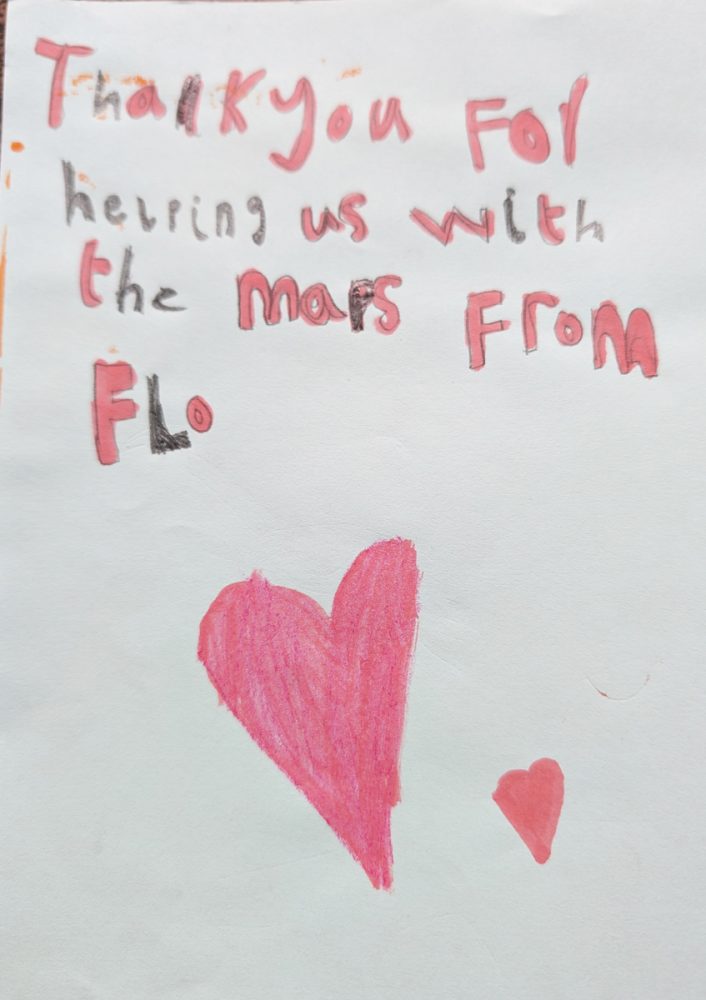 Thank you For
helping us with
the maps From
FLo